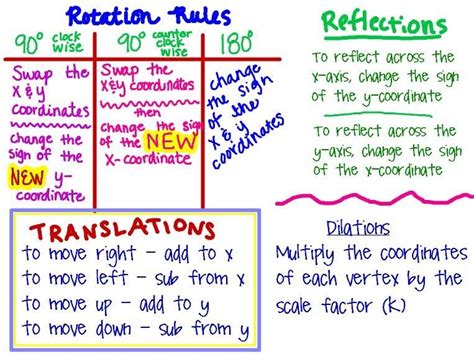 Rotation Rules
90° clock wise
Swap the
X & y
coordinates
change the
sign of the
NEW y-
coordinate
90° counter clock wise
Swap the
X & y coordinates
then
change the sign
of the NEW
X-coordinate
180°
change
the sign
of the
x & y
coordinates
Reflections
To reflect across the
x-axis, change the sign
of the y-coordinate
To reflect across the
y-axis, change the sign
of the x-coordinate
TRANSLATIONS
to move right - add to x
to move left - sub from x
to move up - add to y
to move down - sub from y
Dilations
Multiply the coordinates
of each vertex by the
scale factor (K)